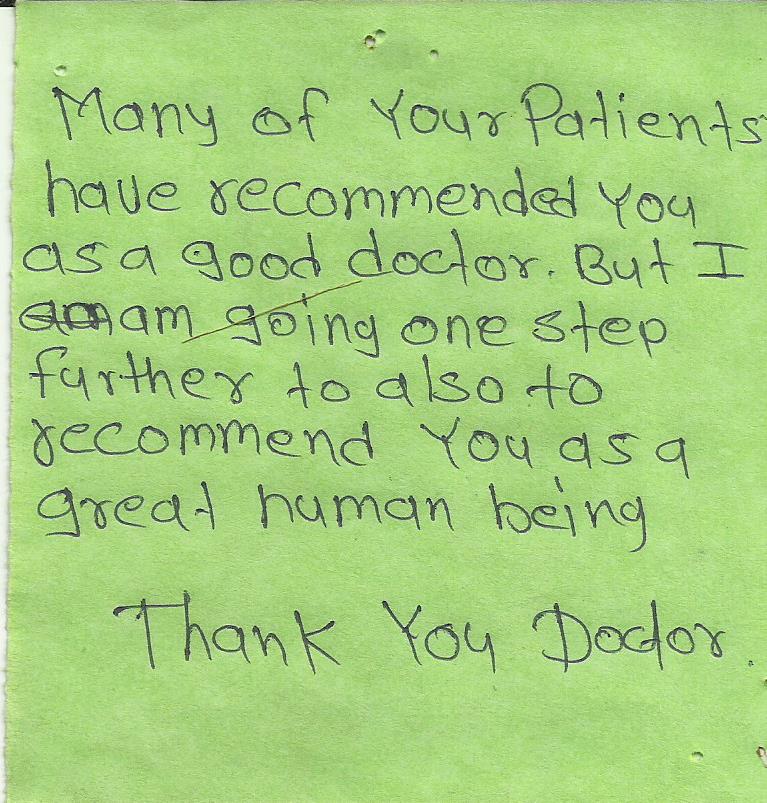 Many of Your Patients
have recommended You
as a good doctor. But I
am going one step
further to also to
recommend You as a
great human being
Thank You Doctor.